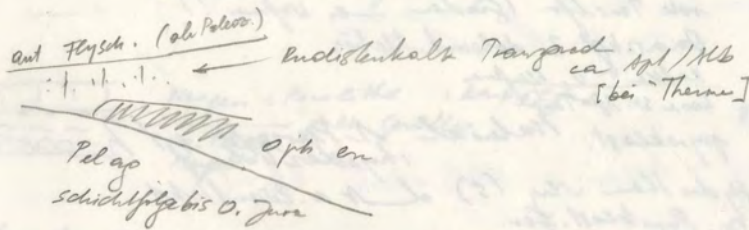 aut Flysch. (ob Paleoz.)
Rudistenkalk Transgred
ca Apt/Alb
[bei Therme]
Oph
Pelag
schichtfolge bis O. Jura